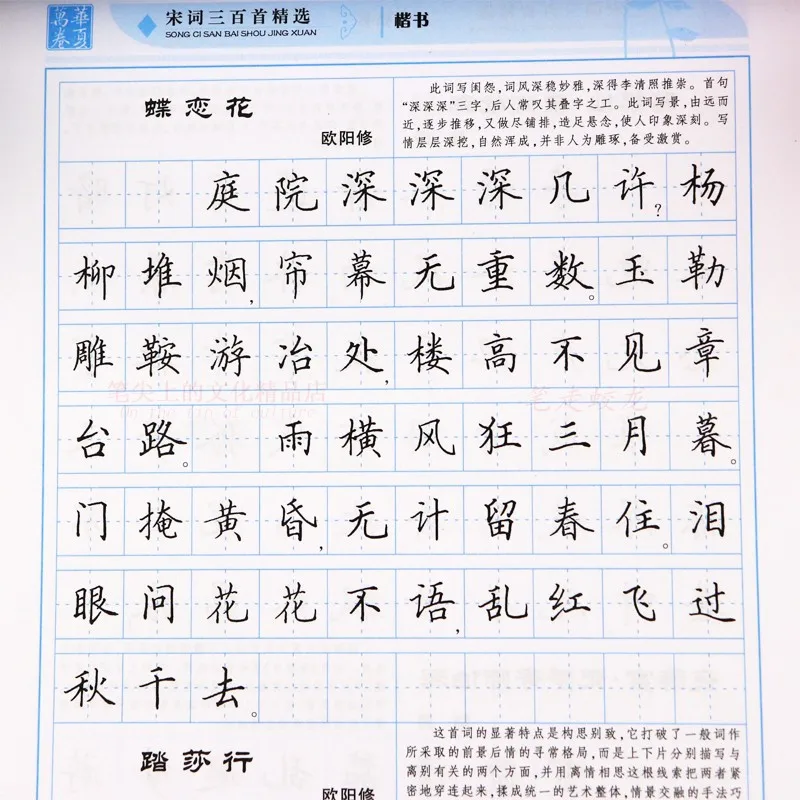 華夏萬卷
宋词三百首精选
SONG CI SAN BAI SHOU JING XUAN
楷书
蝶恋花
欧阳修
此词写闺怨，词风深稳妙雅，深得李清照推崇。首句
“深深深”三字，后人常叹其叠字之工。此词写景，由远而
近，逐步推移，又做尽铺排，造足悬念，使人印象深刻。写
情层层深挖，自然浑成，并非人为雕琢，备受激赏。
庭院深深深几许？杨
柳堆烟，帘幕无重数。玉勒
雕鞍游冶处，楼高不见章
台路。 雨横风狂三月暮。
门掩黄昏，无计留春住。泪
眼问花花不语，乱红飞过
秋千去。
笔尖上的文化精品店
On the tip of culture
笔走蛟龙
踏莎行
欧阳修
这首词的显著特点是构思别致，它打破了一般词作
所采取的前景后情的寻常格局，而是上下片分别描写与
离别有关的两个方面，并用离情相思这根线索把两者紧
密地穿连起来，揉成统一的艺术整体，情景交融的手法巧